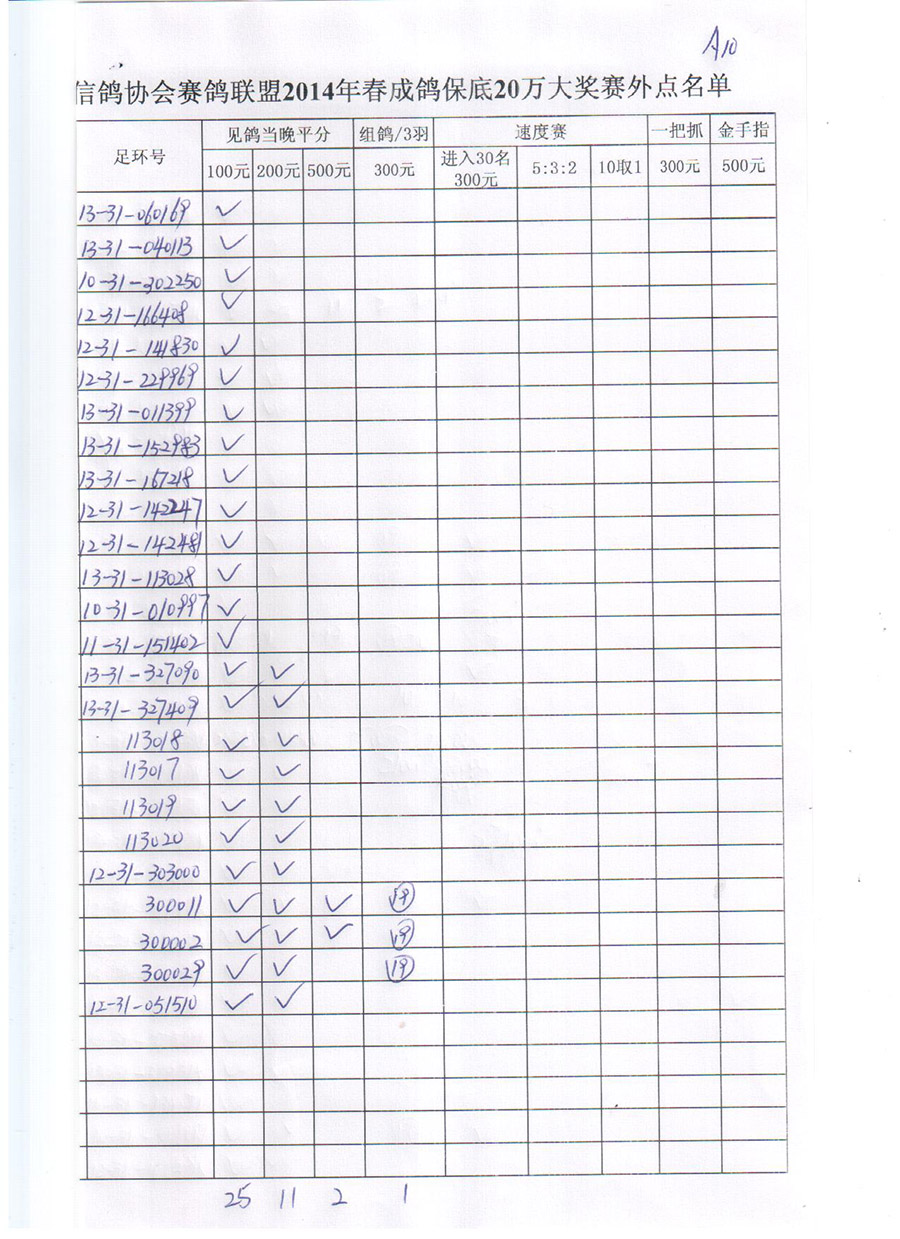 A10
信鸽协会赛鸽联盟2014年春成鸽保底20万大奖赛外点名单
足环号 见鸽当晚平分 组鸽/3羽 速度赛 一把抓 金手指
100元 200元 500元 300元 进入30名300元 5:3:2 10取1 300元 500元
13-31-060169 ✓
13-31-040113 ✓
10-31-302250 ✓
12-31-166408 ✓
12-31-141830 ✓
12-31-229969 ✓
13-31-011399 ✓
13-31-152983 ✓
13-31-167218 ✓
12-31-142247 ✓
12-31-142481 ✓
13-31-113028 ✓
10-31-010997 ✓
11-31-151402 ✓
13-31-327090 ✓ ✓
13-31-327409 ✓ ✓
113018 ✓ ✓
113017 ✓ ✓
113019 ✓ ✓
113020 ✓ ✓
12-31-303000 ✓ ✓
300011 ✓ ✓ ✓ 19
300002 ✓ ✓ ✓ 19
300029 ✓ ✓ 19
12-31-051510 ✓ ✓
25 11 2 1